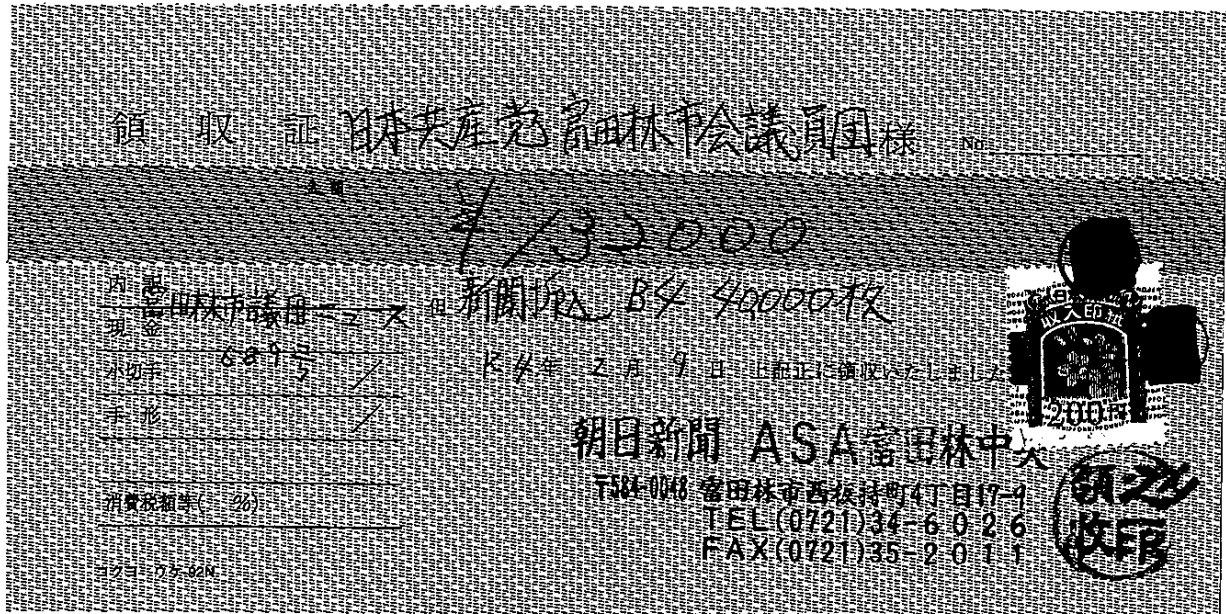 領収証 日本共産党富田林市会議員団様 No.
金額
¥132000
内訳
富田林市議団ニュース 但 新聞折込 B4 40000枚
現金
689号
小切手 R4年2月9日 上記正に領収いたしました
手形
収入印紙
200円
朝日新聞 ASA富田林中央
〒584-0048 富田林市西板持町4丁目17-9
消費税額等( %)
TEL(0721)34-6026
FAX(0721)35-2011
領収之印
コクヨ ウケ-92N